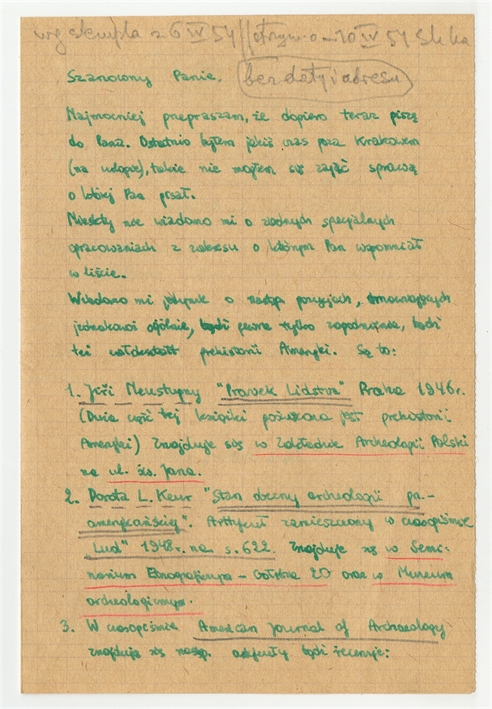 wg stempla z 6 IV 54 // otrzym. 10 IV 54
Szanowny Panie,
bez daty i adresu
Najmocniej przepraszam, że dopiero teraz piszę
do Pana. Ostatnio byłem jakiś czas poza Krakowem
(na urlopie), także nie mogłem się zająć sprawą
o której Pan pisał.
Niestety nie wiadomo mi o żadnych specjalnych
opracowaniach z zakresu o którym Pan wspomniał
w liście.
Wiadomo mi jedynie o nastp. pozycjach, omawiających
jednakowoż ogólnie, bądź pewne tylko zagadnienie, bądź
też prehistorii Ameryki. Są to:
1. Jiři Neustupny "Pravek Lidstva" Praha 1946 r.
(Duża część tej książki poświęcona jest prehistorii
Ameryki) Znajduje się w Zakładzie Archeologii Polski
na ul. św. Jana.
2. Dorota L. Keur "Stan obecny archeologii pn.-
amerykańskiej". Artykuł zamieszczony w czasopiśmie
"Lud" 1948 r. na s. 622. Znajduje się w Semi-
narium Etnograficznym - Gołębia 20 oraz w Muzeum
archeologicznym.
3. W czasopiśmie American Journal of Archaeology
znajdują się nastp. artykuły bądź recenzje: